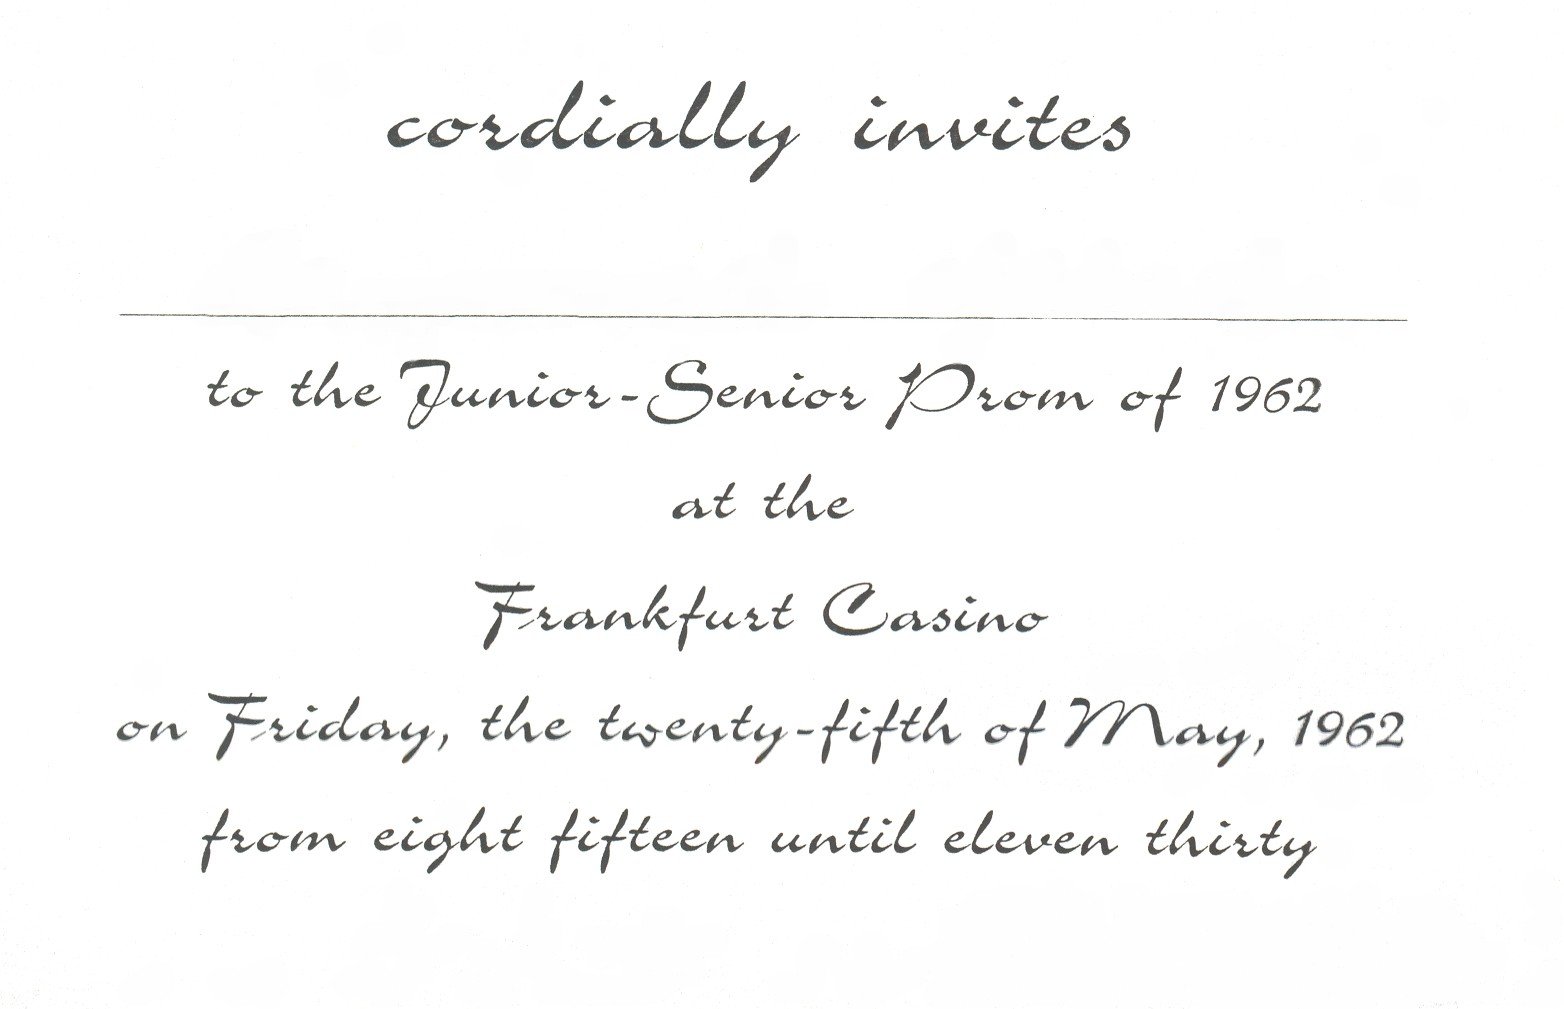 cordially invites
to the Junior-Senior Prom of 1962
at the
Frankfurt Casino
on Friday, the twenty-fifth of May, 1962
from eight fifteen until eleven thirty